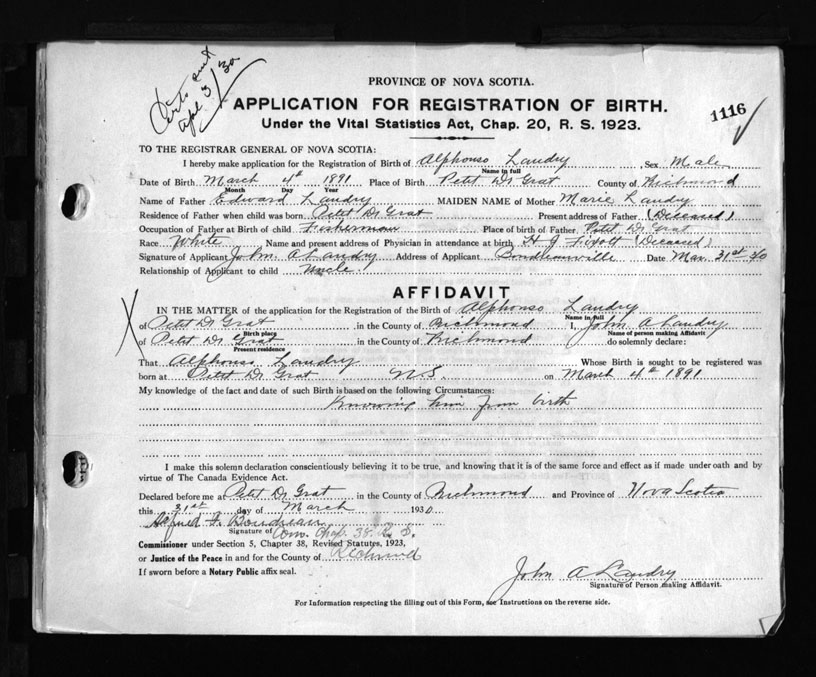 Certs sent
Apl 3/30
PROVINCE OF NOVA SCOTIA.
1116
APPLICATION FOR REGISTRATION OF BIRTH.
Under the Vital Statistics Act, Chap. 20, R. S. 1923.
TO THE REGISTRAR GENERAL OF NOVA SCOTIA:
I hereby make application for the Registration of Birth of Alphonso Landry Sex Male
Name in full
Date of Birth March 4th 1891 Place of Birth Petit De Grat County of Richmond
Month Day Year
Name of Father Edward Landry MAIDEN NAME of Mother Marie Landry
Residence of Father when child was born Petit De Grat Present address of Father (Deceased)
Occupation of Father at Birth of child Fisherman Place of birth of Father Petit De Grat
Race White Name and present address of Physician in attendance at birth H J Fixott (Deceased)
Signature of Applicant John A Landry Address of Applicant Boudreauville Date Mar. 31st 30
Relationship of Applicant to child Uncle
AFFIDAVIT
IN THE MATTER of the application for the Registration of the Birth of Alphonso Landry
Name in full
Petit De Grat in the County of Richmond I, John A Landry
Birth place Name of person making Affidavit
of Petit De Grat in the County of Richmond do solemnly declare:
Present residence
That Alphonso Landry Whose Birth is sought to be registered was
born at Petit De Grat N.S. on March 4th 1891
My knowledge of the fact and date of such Birth is based on the following Circumstances:
Knowing him from birth
I make this solemn declaration conscientiously believing it to be true, and knowing that it is of the same force and effect as if made under oath and by
virtue of The Canada Evidence Act.
Declared before me at Petit De Grat in the County of Richmond and Province of Nova Scotia
this 31st day of March 1930
Alfred F. Boudreau
Signature of Com. Chap. 38 R. S.
Commissioner under Section 5, Chapter 38, Revised Statutes, 1923,
or Justice of the Peace in and for the County of Richmond
If sworn before a Notary Public affix seal.
John A Landry
Signature of Person making Affidavit.
For Information respecting the filling out of this Form, see Instructions on the reverse side.